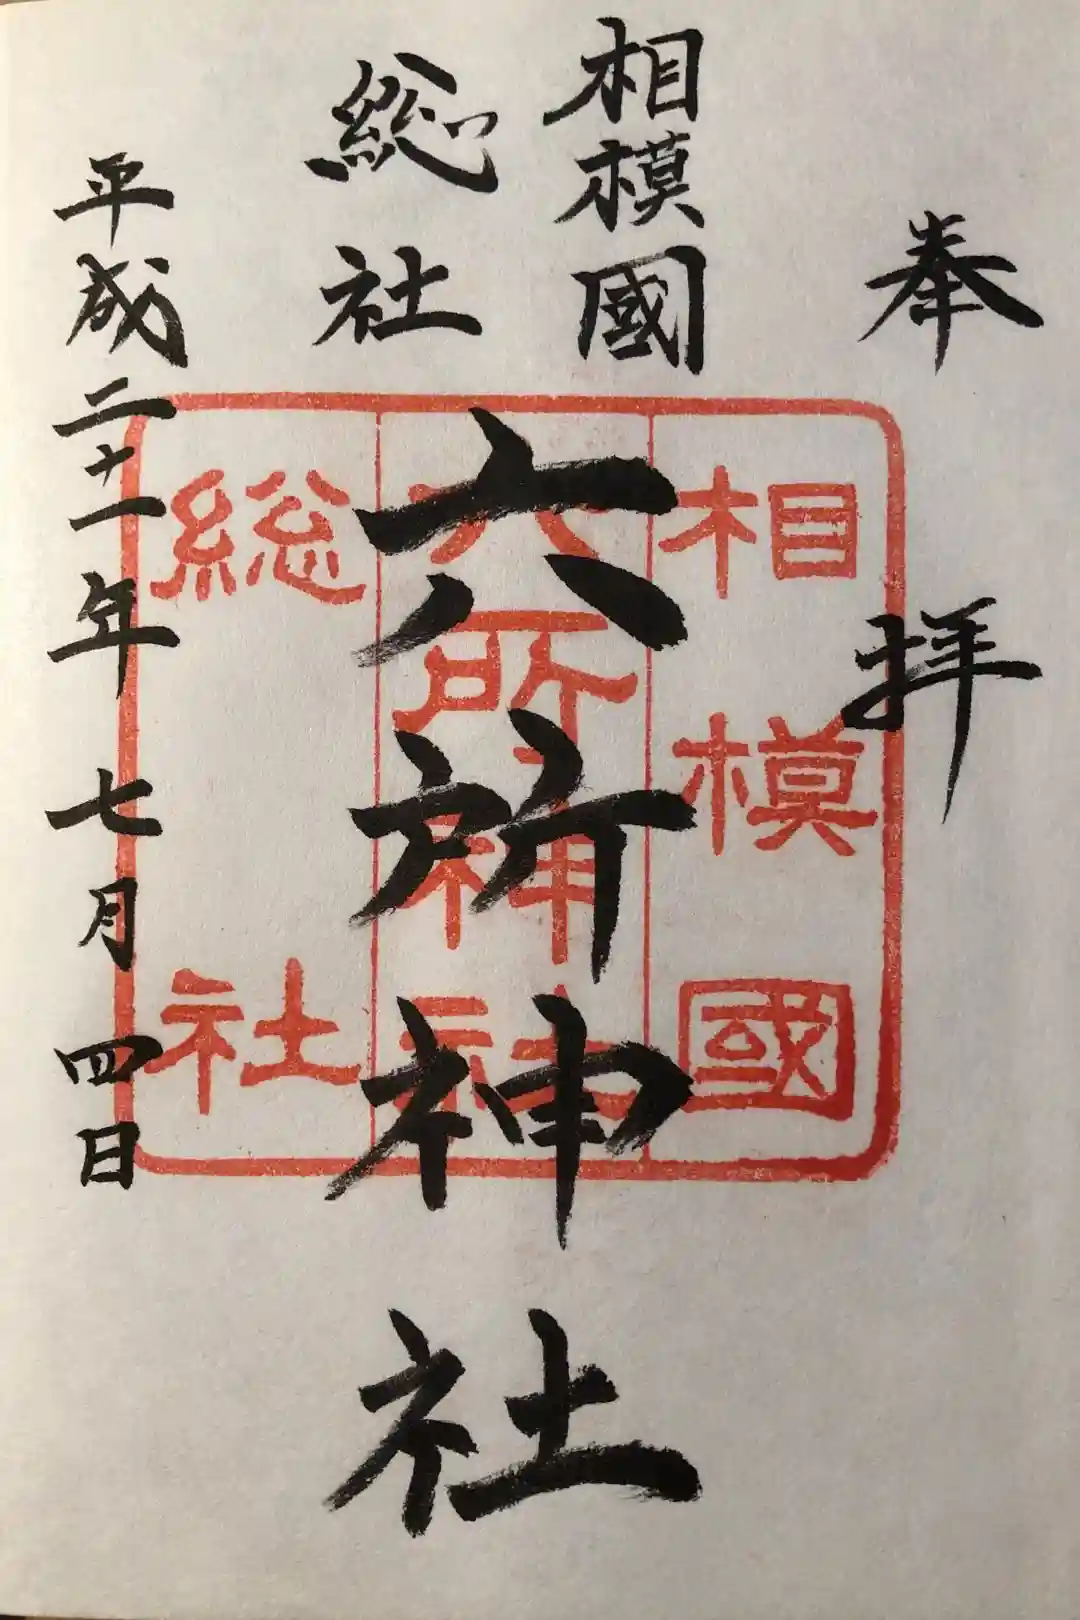 奉拝
相模國
総社
六所神社
平成二十一年七月四日
相模國
六所神社
総社